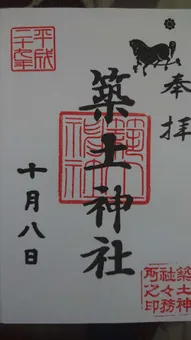 奉拝
築土神社
十月八日
平成
二十七年
築土神社
築土神
社々務
所之印